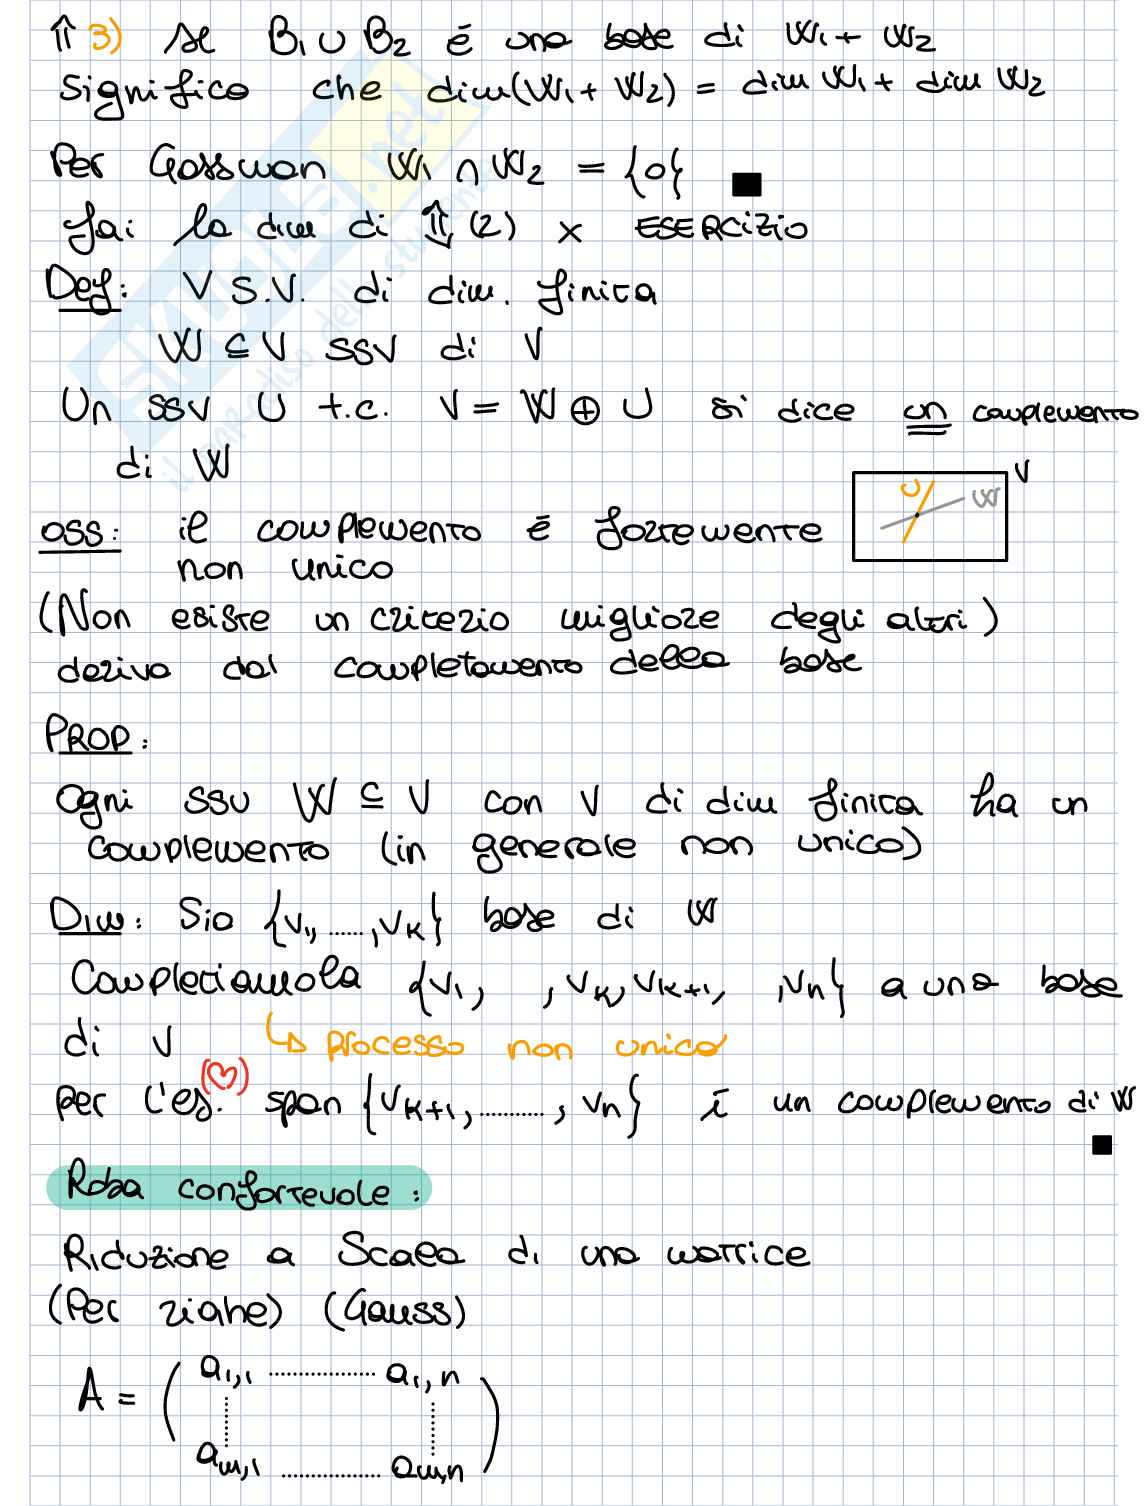 ⇑ 3) se B₁ ∪ B₂ è una base di W₁ + W₂
significa che dim(W₁ + W₂) = dim W₁ + dim W₂
Per Grassman W₁ ∩ W₂ = {0} ■
fai la dim di ⇕ (2) x ESERCIZIO
Def: V S.V. di dim. finita
W ⊆ V SSV di V
Un SSV U t.c. V = W ⊕ U si dice un complemento
di W
V
U W
OSS: il complemento è fortemente
non unico
(Non esiste un criterio migliore degli altri)
deriva dal completamento della base
PROP:
Ogni ssv W ⊆ V con V di dim finita ha un
complemento (in generale non unico)
Dim: Sia {v₁, ......, vₖ} base di W
Completiamola {v₁, , vₖ, vₖ₊₁, , vₙ} a una base
di V ↳ processo non unico
per l'es. (♡) span {vₖ₊₁, .........., vₙ} è un complemento di W
■
Roba confortevole:
Riduzione a Scala di una matrice
(Per righe) (Gauss)
A = ( a₁,₁ .................. a₁,ₙ
aₘ,₁ ................ aₘ,ₙ )
SKUOLA.net
il paradiso dello studente